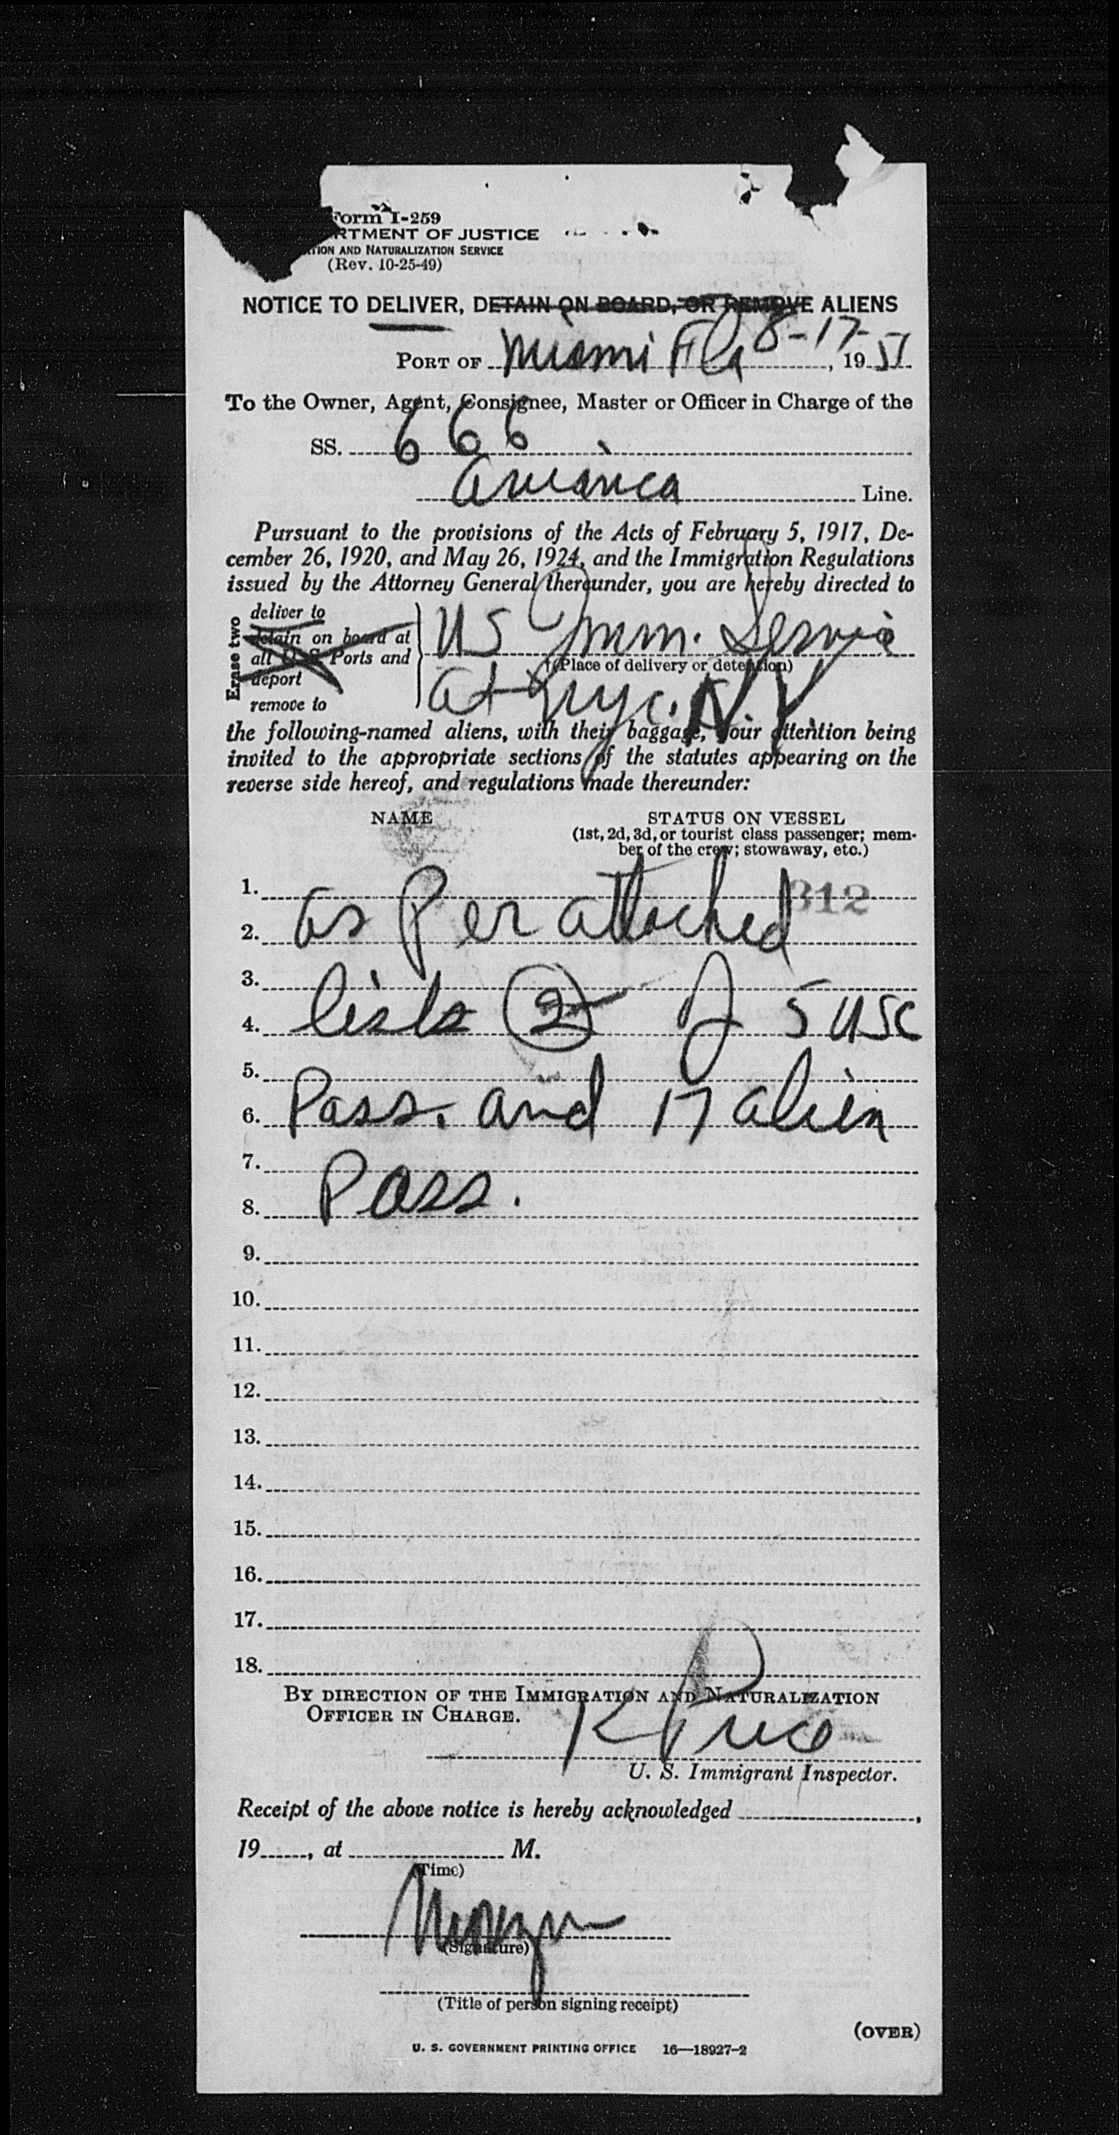 Form I-259
RTMENT OF JUSTICE
TION AND NATURALIZATION SERVICE
(Rev. 10-25-49)
NOTICE TO DELIVER, DETAIN ON BOARD, OR REMOVE ALIENS
PORT OF Miami Fla 8-17-, 1951
To the Owner, Agent, Consignee, Master or Officer in Charge of the
SS. 666
Avianca Line.
Pursuant to the provisions of the Acts of February 5, 1917, De-
cember 26, 1920, and May 26, 1924, and the Immigration Regulations
issued by the Attorney General thereunder, you are hereby directed to
Erase two
deliver to
detain on board at
all U. S. Ports and
deport
remove to
US Imm. Service
(Place of delivery or detention)
at nyc. N.Y
the following-named aliens, with their baggage, your attention being
invited to the appropriate sections of the statutes appearing on the
reverse side hereof, and regulations made thereunder:
NAME STATUS ON VESSEL
(1st, 2d, 3d, or tourist class passenger; mem-
ber of the crew; stowaway, etc.)
1. 312
2. as Per attached
3.
4. lists 2 of 5 USC
5.
6. Pass. and 17 alien
7.
8. Pass.
9.
10.
11.
12.
13.
14.
15.
16.
17.
18.
BY DIRECTION OF THE IMMIGRATION AND NATURALIZATION
OFFICER IN CHARGE.
K Price
U. S. Immigrant Inspector.
Receipt of the above notice is hereby acknowledged ,
19 , at M.
(Time)
(Signature)
(Title of person signing receipt)
(OVER)
U. S. GOVERNMENT PRINTING OFFICE 16—18927-2